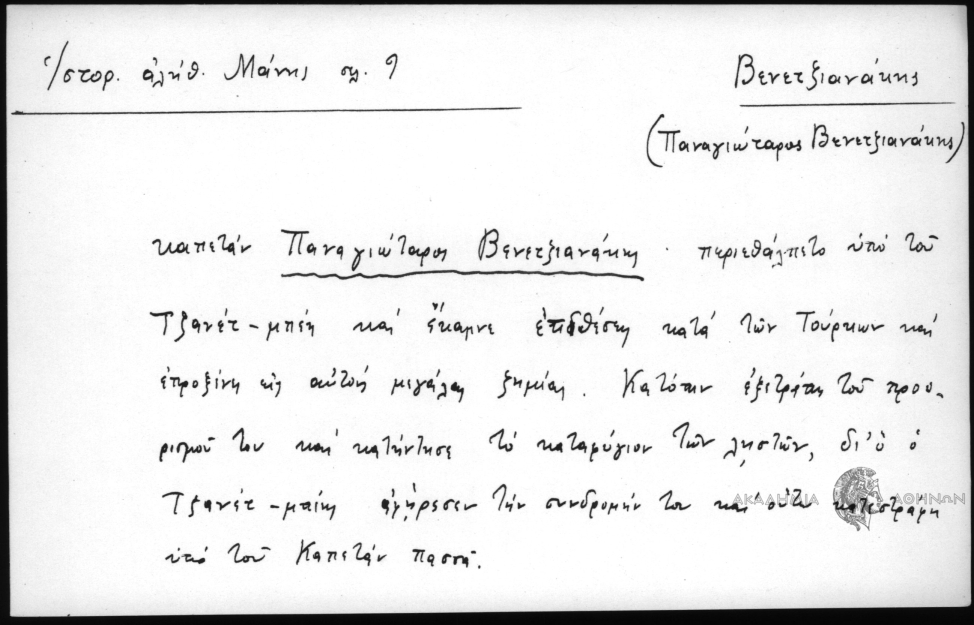 Ἱστορ. ἀλήθ. Μάνης σελ. 9
Βενετζιανάκης
(Παναγιώταρος Βενετζιανάκης)
καπετάν Παναγιώταρος Βενετζιανάκης · περιεθάλπετο ὑπό τοῦ
Τζανέτ-μπέη καί ἔκαμνε ἐπιθέσεις κατά τῶν Τούρκων καί
ἐπροξένει εἰς αὐτούς μεγάλας ζημίας. Κατόπιν ἐξετράπη τοῦ προο-
ρισμοῦ του καί κατήντησε τό καταφύγιον τῶν λῃστῶν, δι' ὅ ὁ
Τζανέτ-μπέης ἀφῄρεσεν τήν συνδρομήν του καί οὕτω κατεστράφη
ὑπό τοῦ Καπετάν πασσᾶ.
ΑΚΑΔΗΜΙΑ ΑΘΗΝΩΝ